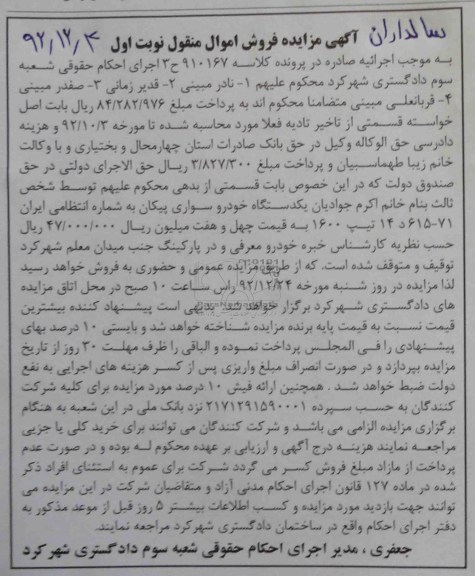 سالداران ۹۲,۱۲,۳
آگهی مزایده فروش اموال منقول نوبت اول
به موجب اجرائیه صادره در پرونده کلاسه ۹۱۰۱۶۷ ح۳ اجرای احکام حقوقی شعبه
سوم دادگستری شهرکرد محکوم علیهم ۱- نادر مبینی ۲- قدیر زمانی ۳- صفدر مبینی
۴- قربانعلی مبینی متضامنا محکوم اند به پرداخت مبلغ ۸۴/۲۸۲/۹۷۶ ریال بابت اصل
خواسته قسمتی از تاخیر تادیه فعلا مورد محاسبه شده تا مورخه ۹۲/۱۰/۳ و هزینه
دادرسی حق الوکاله وکیل در حق بانک صادرات استان چهارمحال و بختیاری و با وکالت
خانم زیبا طهماسبیان و پرداخت مبلغ ۳/۸۲۷/۳۰۰ ریال حق الاجرای دولتی در حق
صندوق دولت که در این خصوص بابت قسمتی از بدهی محکوم علیهم توسط شخص
ثالث بنام خانم اکرم جوادیان یکدستگاه خودرو سواری پیکان به شماره انتظامی ایران
۷۱-۶۱۵ د ۱۴ تیپ ۱۶۰۰ به قیمت چهل و هفت میلیون ریال ۴۷/۰۰۰/۰۰۰ ریال
حسب نظریه کارشناس خبره خودرو معرفی و در پارکینگ جنب میدان معلم شهرکرد
توقیف و متوقف شده است. که از طریق مزایده عمومی و حضوری به فروش خواهد رسید
لذا مزایده در روز شنبه مورخه ۹۲/۱۲/۲۴ راس ساعت ۱۰ صبح در محل اتاق مزایده
های دادگستری شهرکرد برگزار خواهد شد. بدیهی است پیشنهاد کننده بیشترین
قیمت نسبت به قیمت پایه برنده مزایده شناخته خواهد شد و بایستی ۱۰ درصد بهای
پیشنهادی را فی المجلس پرداخت نموده و الباقی را ظرف مهلت ۳۰ روز از تاریخ
مزایده بپردازد و در صورت انصراف مبلغ واریزی پس از کسر هزینه های اجرایی به نفع
دولت ضبط خواهد شد . همچنین ارائه فیش ۱۰ درصد مورد مزایده برای کلیه شرکت
کنندگان به حسب سپرده ۲۱۷۱۲۹۱۵۹۰۰۰۱ نزد بانک ملی در این شعبه به هنگام
برگزاری مزایده الزامی می باشد و شرکت کنندگان می توانند برای خرید کلی یا جزیی
مراجعه نمایند هزینه درج آگهی و ارزیابی بر عهده محکوم له بوده و در صورت عدم
پرداخت از مازاد مبلغ فروش کسر می گردد شرکت برای عموم به استثنای افراد ذکر
شده در ماده ۱۲۷ قانون اجرای احکام مدنی آزاد و متقاضیان شرکت در این مزایده می
توانند جهت بازدید مورد مزایده و کسب اطلاعات بیشتر ۵ روز قبل از موعد مذکور به
دفتر اجرای احکام واقع در ساختمان دادگستری شهرکرد مراجعه نمایند.
جعفری ، مدیر اجرای احکام حقوقی شعبه سوم دادگستری شهرکرد